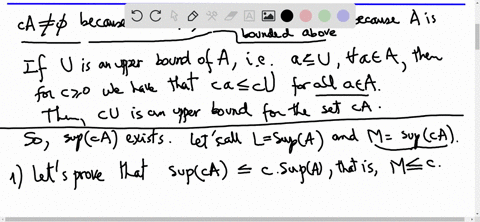 cA≠∅ because ecause A is
bounded above
If U is an upper bound of A, i.e. a≤U, ∀a∈A, then
for c≥0 we have that ca≤cU for all a∈A.
Then, cU is an upper bound for the set cA.
So, sup(cA) exists. Let's call L=Sup(A) and M=sup(cA).
1) Let's prove that sup(cA) ≤ c.Sup(A), that is, M≤c.